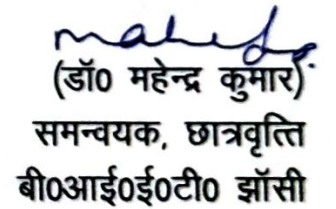 (डॉ0 महेन्द्र कुमार)
समन्वयक, छात्रवृत्ति
बी0आई0ई0टी0 झॉसी